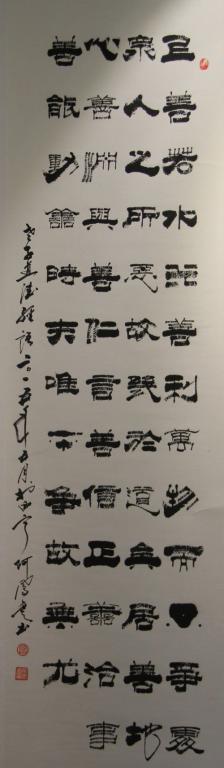 上善若水水善利萬物而不爭處
衆人之所惡故幾於道矣居善地
心善淵與善仁言善信正善治事
善能動善時夫唯不爭故無尤
老子道德經語二〇一五年